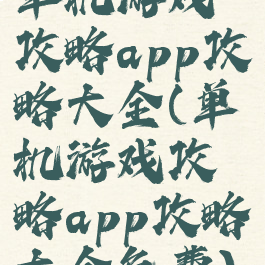 单机游戏
攻略app攻
略大全(单
机游戏攻
略app攻略
大全免费)